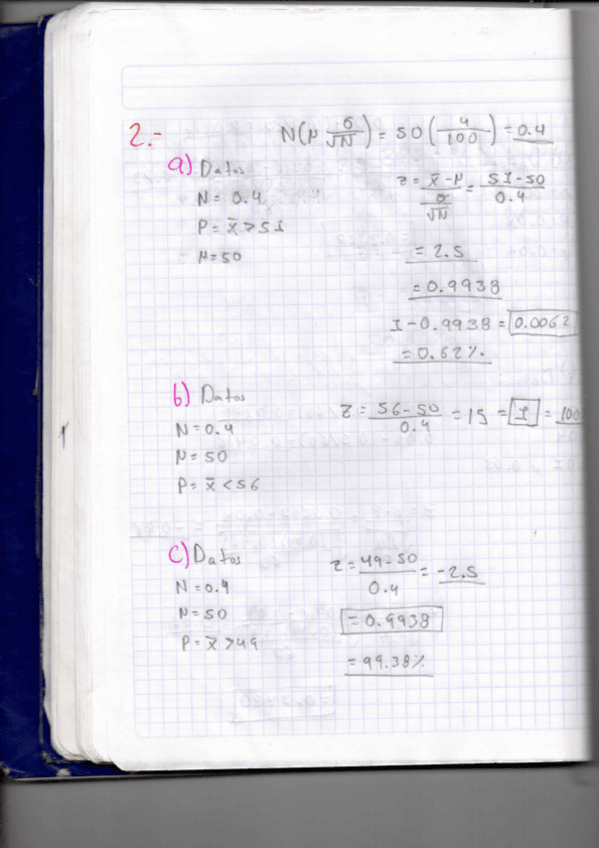 2.- N(μ σ/√N) = 50 (4/100) = 0.4
a) Datos
N = 0.4
P = x̄ > 51
μ = 50
z = x̄ - μ / σ/√N = 51 - 50 / 0.4
= 2.5
= 0.9938
1 - 0.9938 = 0.0062
= 0.62%.
b) Datos
N = 0.4
μ = 50
P = x̄ < 56
z = 56 - 50 / 0.4 = 15 = 1 = 100
c) Datos
N = 0.4
μ = 50
P = x̄ > 49
z = 49 - 50 / 0.4 = -2.5
= 0.9938
= 99.38%